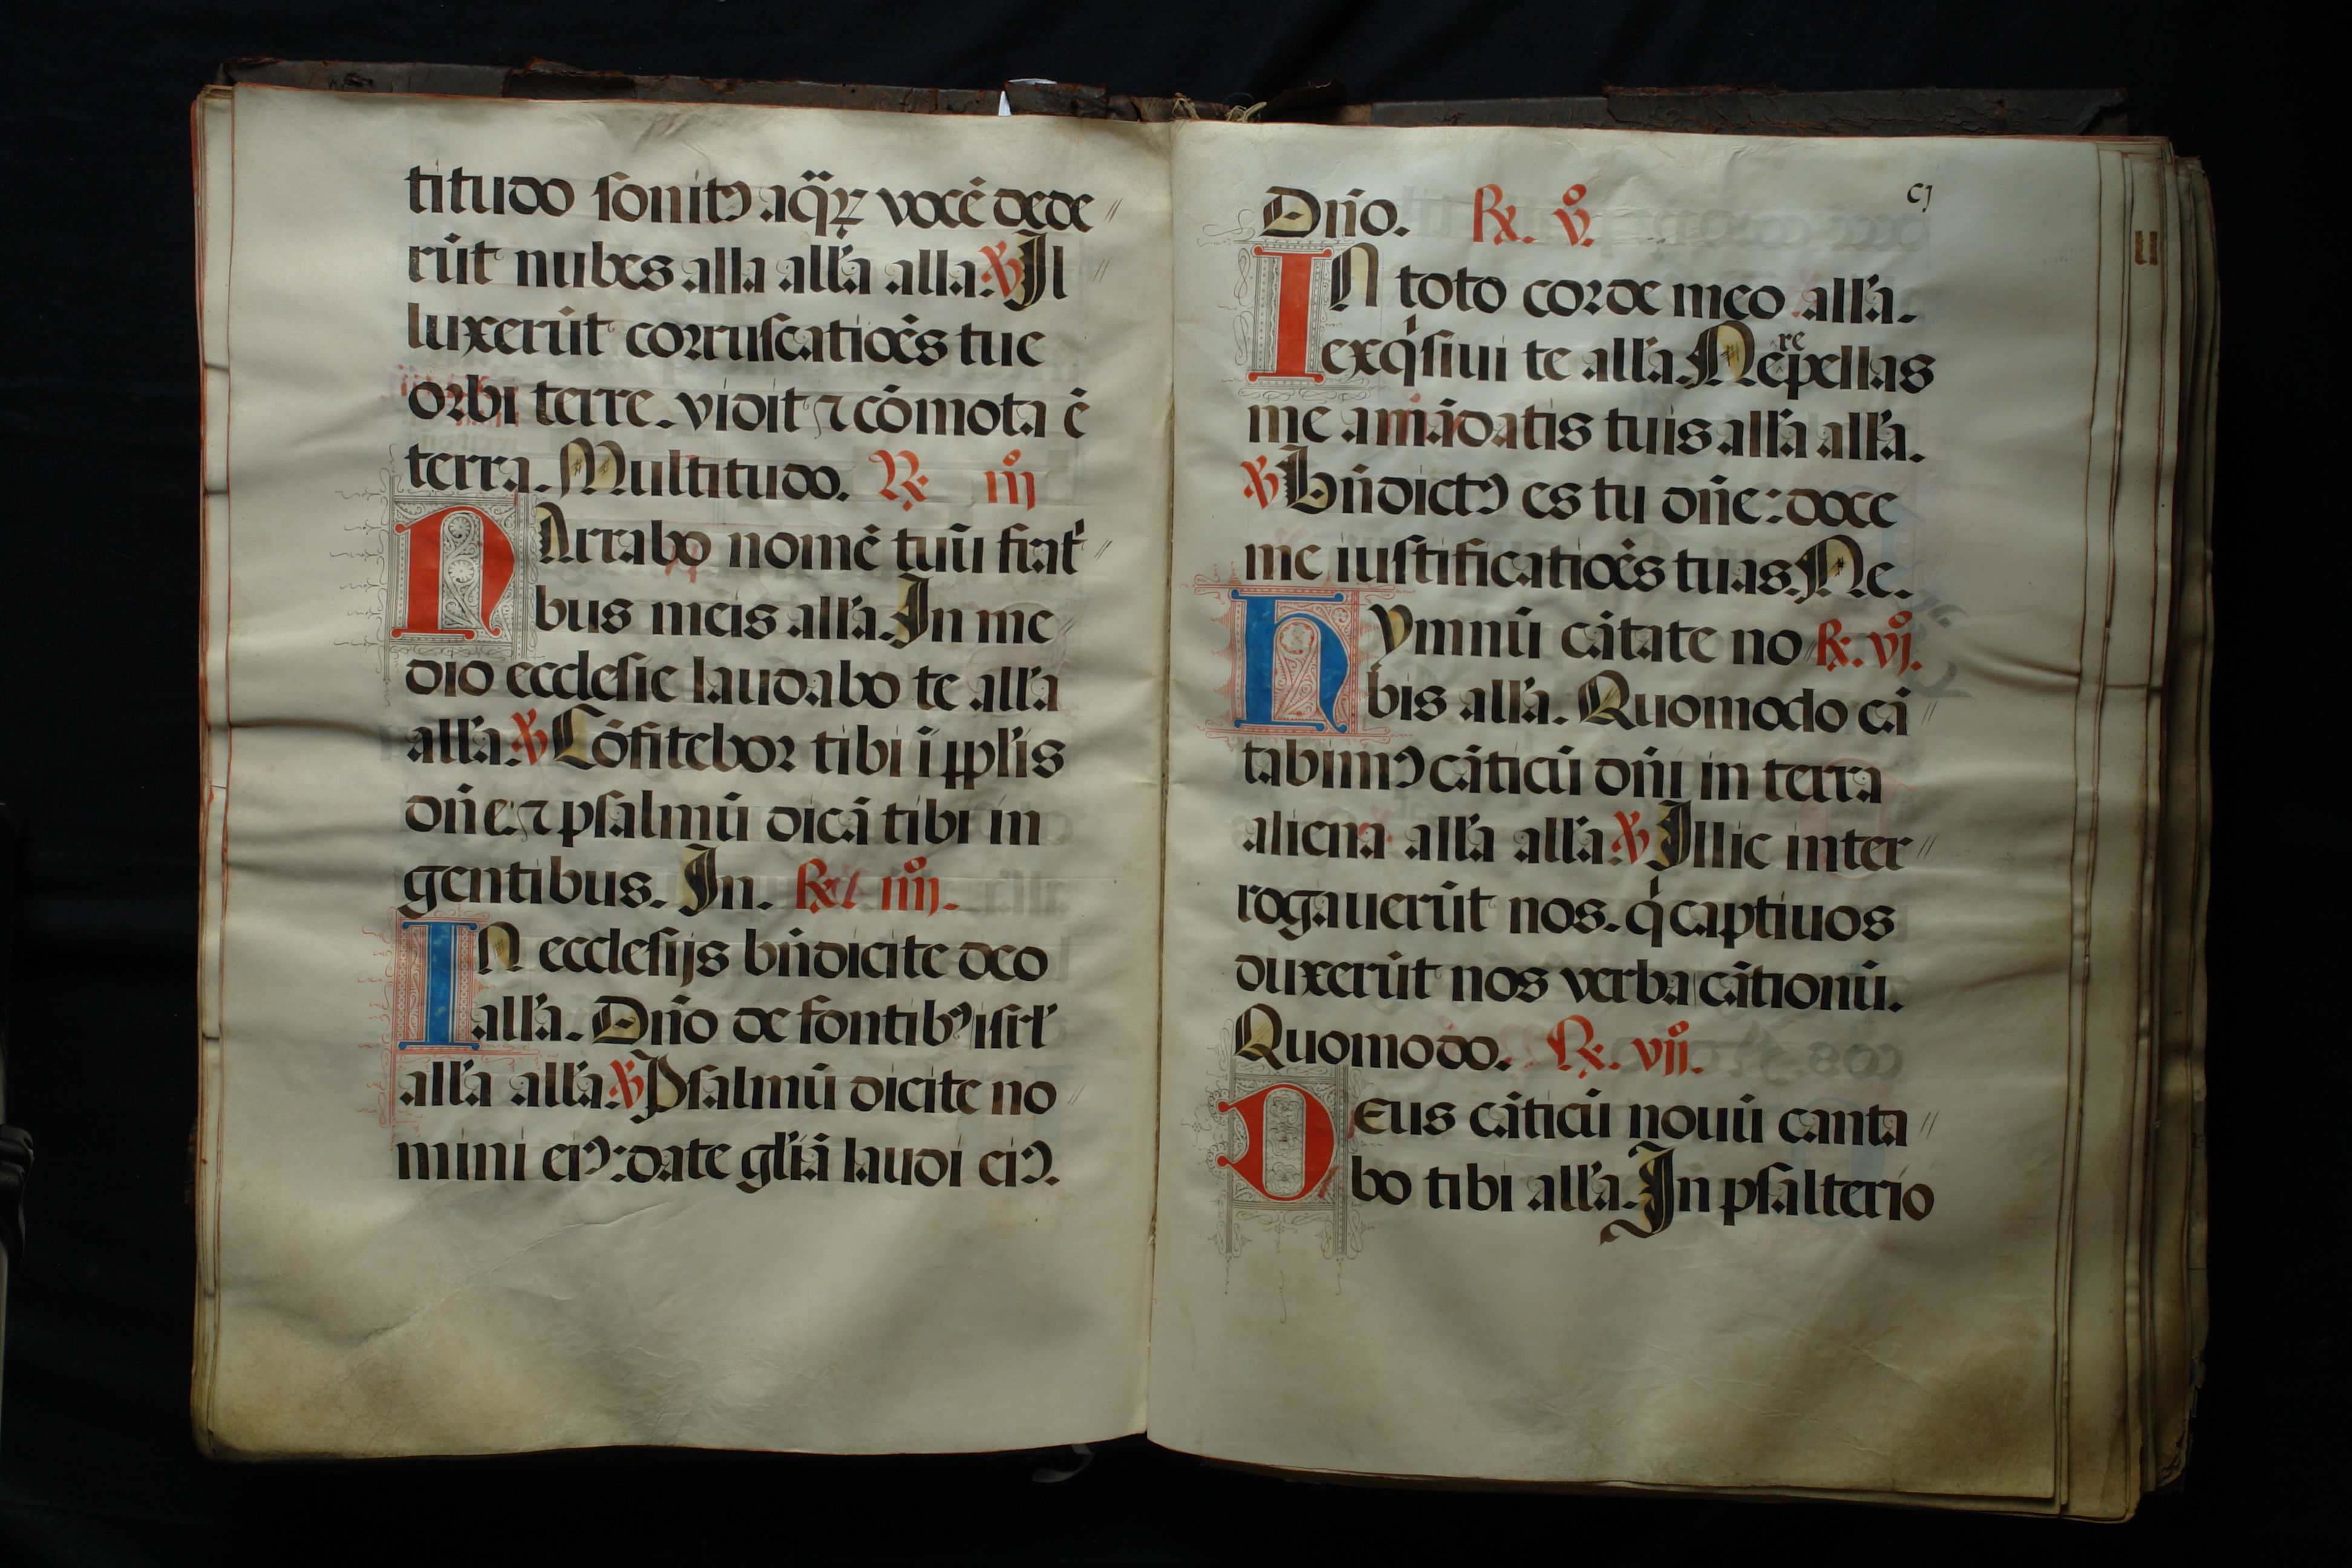 titudo ſonitꝰ aq̈ꝝ vocē dede
rūt nubes alla all'a alla. ℣ Il
luxerūt corruſcatiōes tue
orbi terre. vidit ⁊ cōmota ē
terra. Multitudo. ℟ iijͦ
NArrabo nomē tuū frat'
bus meis all'a. In me
dio eccleſie laudabo te all'a
all'a. ℣ Cōfitebor tibi ī ppl'is
dn̄e. ⁊ pſalmū dicā tibi in
gentibus. In. ℟ iiijͦ.
IN eccleſijs bn̄dicite deo
all'a. Dn̄o de fontibꝰ iſrl'
all'a all'a. ℣ Pſalmū dicite no
mini eiꝰ: date gl'iā laudi eiꝰ.
cj
Dn̄o. ℟. vͦ.
IN toto corde meo all'a.
exqiſiui te all'a. Ne repellas
me a mādatis tuis all'a all'a.
℣ Bn̄dictꝰ es tu dn̄e: doce
me iuſtificatiōes tuas. Ne.
HYmnū cātate no ℟. vjͦ.
bis all'a. Quomodo cā
tabimꝰ cāticū dn̄i in terra
aliena all'a all'a. ℣ Illic inter
rogauerūt nos. qi captiuos
duxerūt nos verba cātionū.
Quomodo. ℟. vijͦ.
DEus cāticū nouū canta
bo tibi all'a. In pſalterio